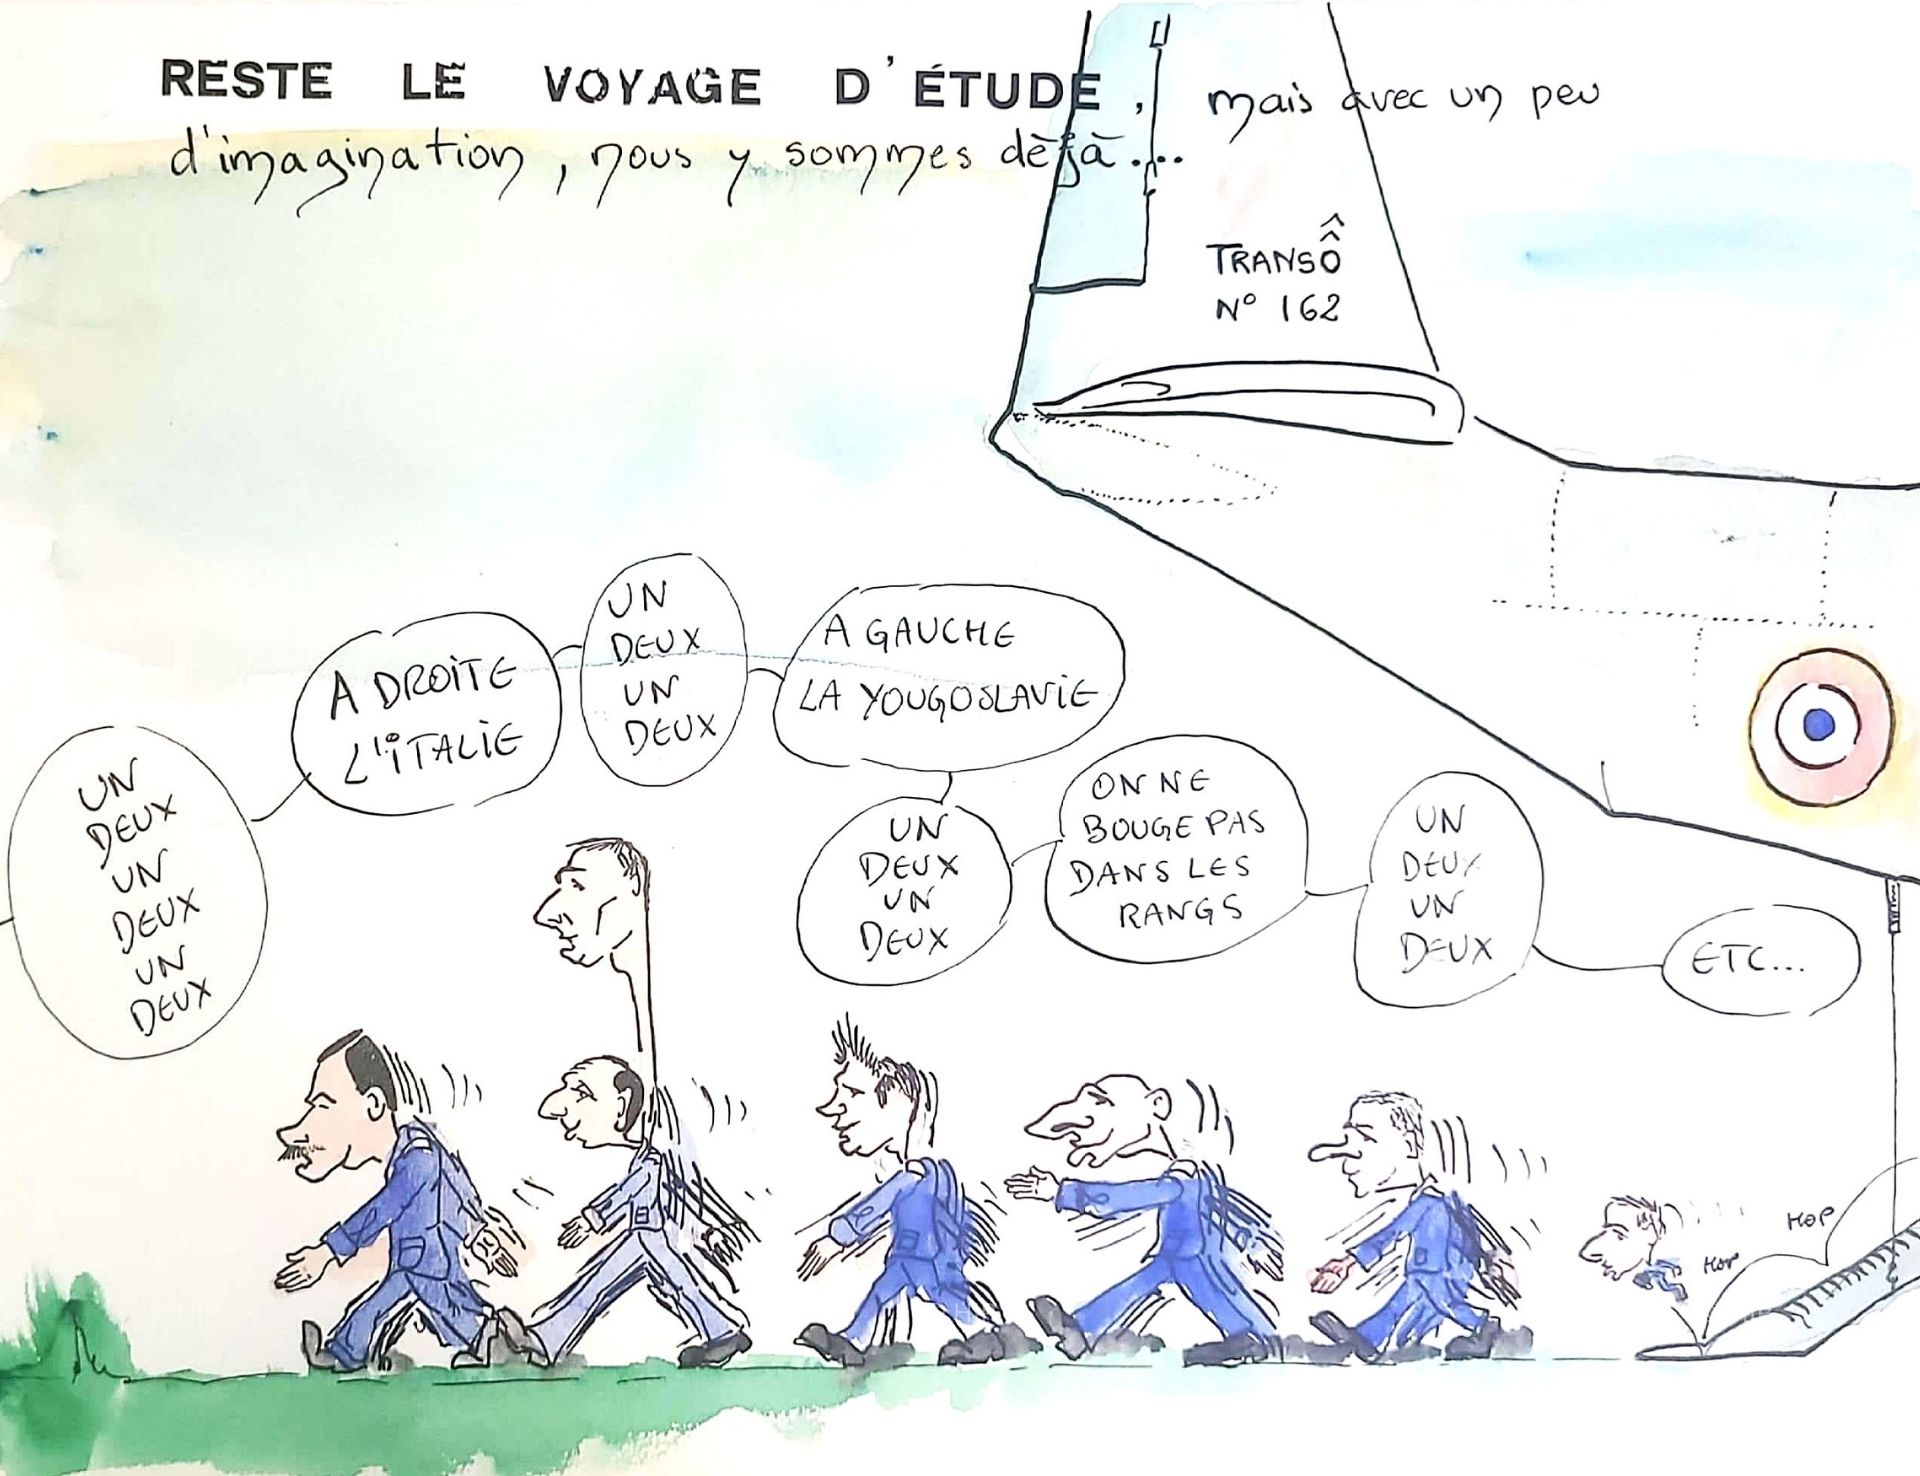 RESTE LE VOYAGE D'ÉTUDE, mais avec un peu
d'imagination, nous y sommes déjà....
TRANSÔ
N° 162
UN
DEUX
UN
DEUX
UN
DEUX
A DROITE
L'ITALIE
UN
DEUX
UN
DEUX
A GAUCHE
LA YOUGOSLAVIE
UN
DEUX
UN
DEUX
ON NE
BOUGE PAS
DANS LES
RANGS
UN
DEUX
UN
DEUX
ETC...
HOP
HOP